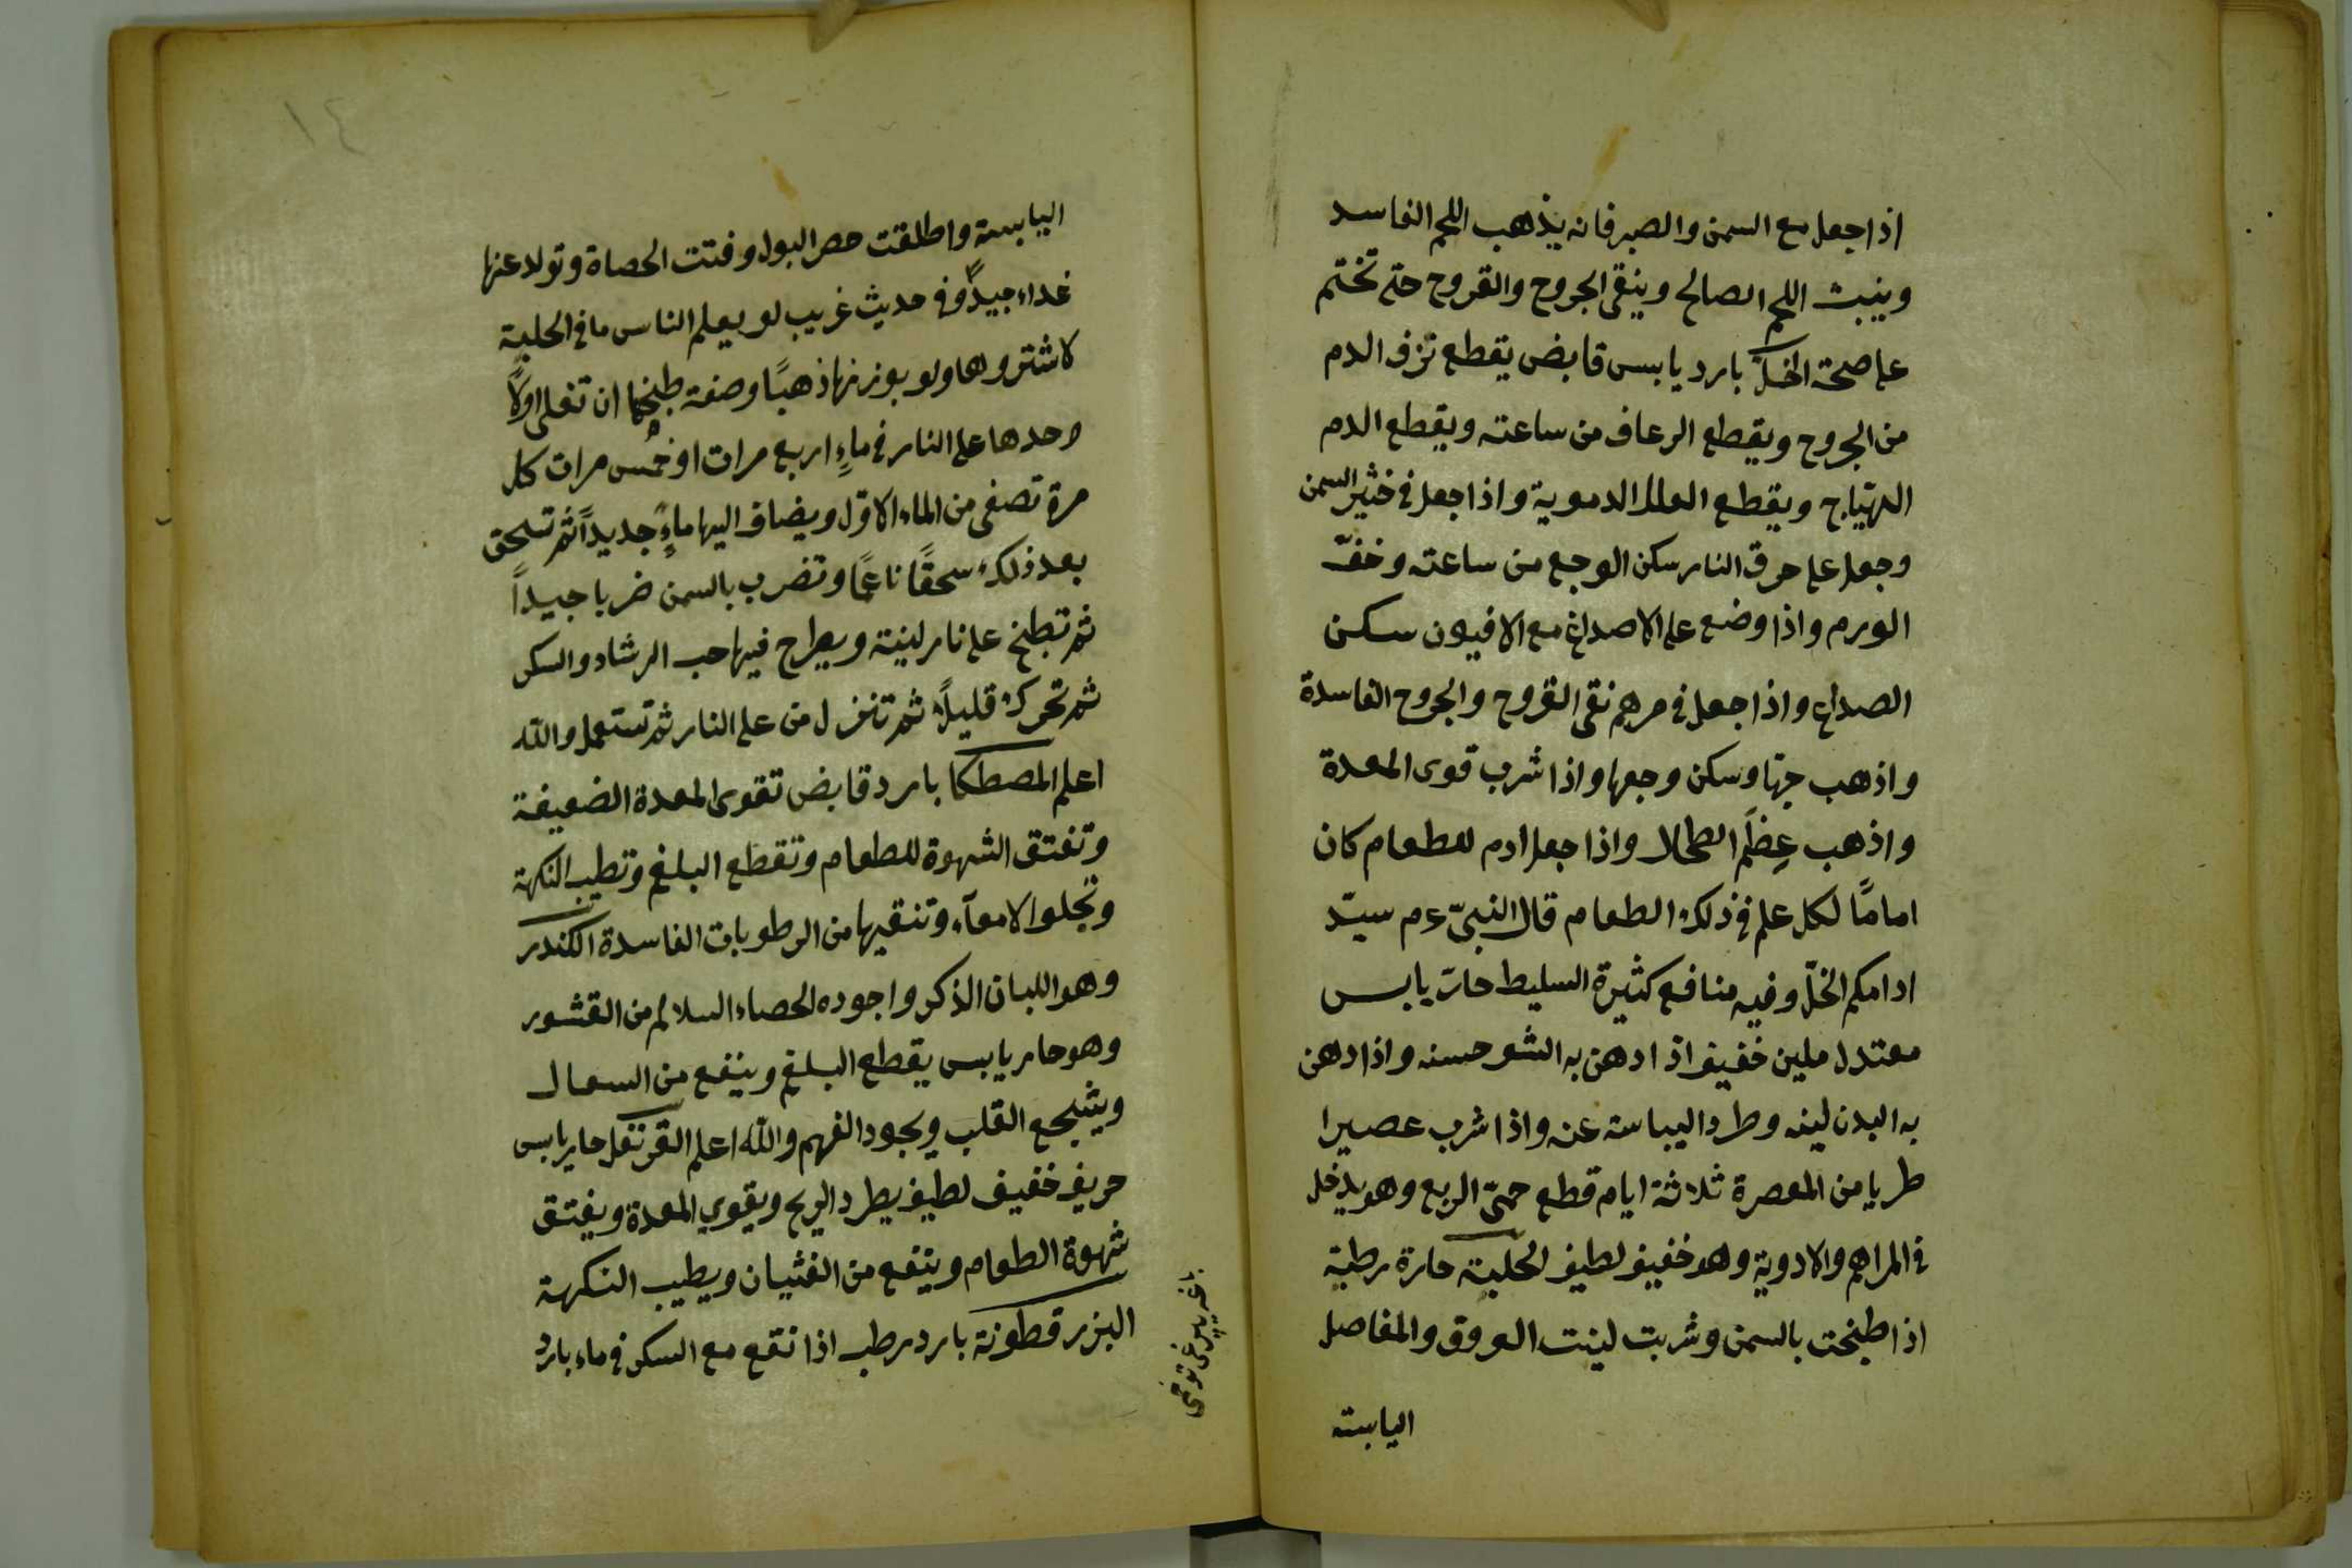 اذا جعل مع السمن والصبر فانه يذهب اللحم الفاسد
وينبت اللحم الصالح وينقى الجروح والقروح حتى تختم
على صحة الخلّ بارد يابس قابض يقطع نزف الدم
من الجروح ويقطع الرعاف من ساعته ويقطع الدم
الهتياج ويقطع العلل الدموية واذا جعل في خثير السمن
وجعل على حرق النار سكن الوجع من ساعته وخفّ
الورم واذا وضع على الاصداغ مع الافيون سكن
الصداع واذا جعل في مرهم نقى القروح والجروح الفاسدة
واذهب وسكن وجعها واذا شرب قوى المعدة
واذهب عِظَم الطحال واذا جعل ادم للطعام كان
امامًا لكل علم في ذلك الطعام قال النبىّ ءم سيّد
ادامكم الخلّ وفيه منافع كثيرة السليط حارّ يابس
معتدل ملين خفيف اذا ادهن به الشو حسنه واذا دهن
به البدن لينه وطرد اليباسة عنه واذا شرب عصيرا
طريا من المعصرة ثلاثة ايام قطع حمىّ الربع وهو يدخل
في المراهم والادوية وهو خفيف لطيف الحلبة حارة رطبة
اذا طبخت بالسمن وشربت لينت العروق والمفاصل
اليابسة
اليابسة واطلقت حصر البول وفتت الحصاة وتولد عنها
غداء جيدًا وفي حديث غريب لو يعلم الناس ما في الحلبة
لاشتروها ولو بوزنها ذهبًا وصفة طبخها ان تغلى اولاً
وحدها على النار في ماءٍ اربع مرات او خمُس مرات كل
مرة تصفى من الماء الاوّل ويضاف اليها ماءً جديداً ثم تسحق
بعد ذلك سحقًا ناعمًا وتضرب بالسمن ضربا جيداً
ثم تطبخ على نار لينة ويطراح فيها حب الرشاد والسكر
ثم تحرك قليلاً ثم تنزل من على النار ثم تستعمل والله
اعلم المصطكا بارد قابض تقوى المعدة الضعيفة
وتفتق الشهوة للطعام وتقطع البلغم وتطيب النكهة
وتجلوا الامعآء وتنقيها من الرطوبات الفاسدة الكندر
وهو اللبان الذكر واجوده الحصاء السالم من القشور
وهو حار يابس يقطع البلغم وينفع من السعال
ويشجع القلب ويجود الفهم والله اعلم القرنفل حار يابس
حريف خفيف لطيف يطرد الريح ويقوي المعدة ويفتق
شهوة الطعام وينفع من الغثيان ويطيب النكهة
البزر قطونة بارد رطب اذا نقع مع السكر في ماء بارد